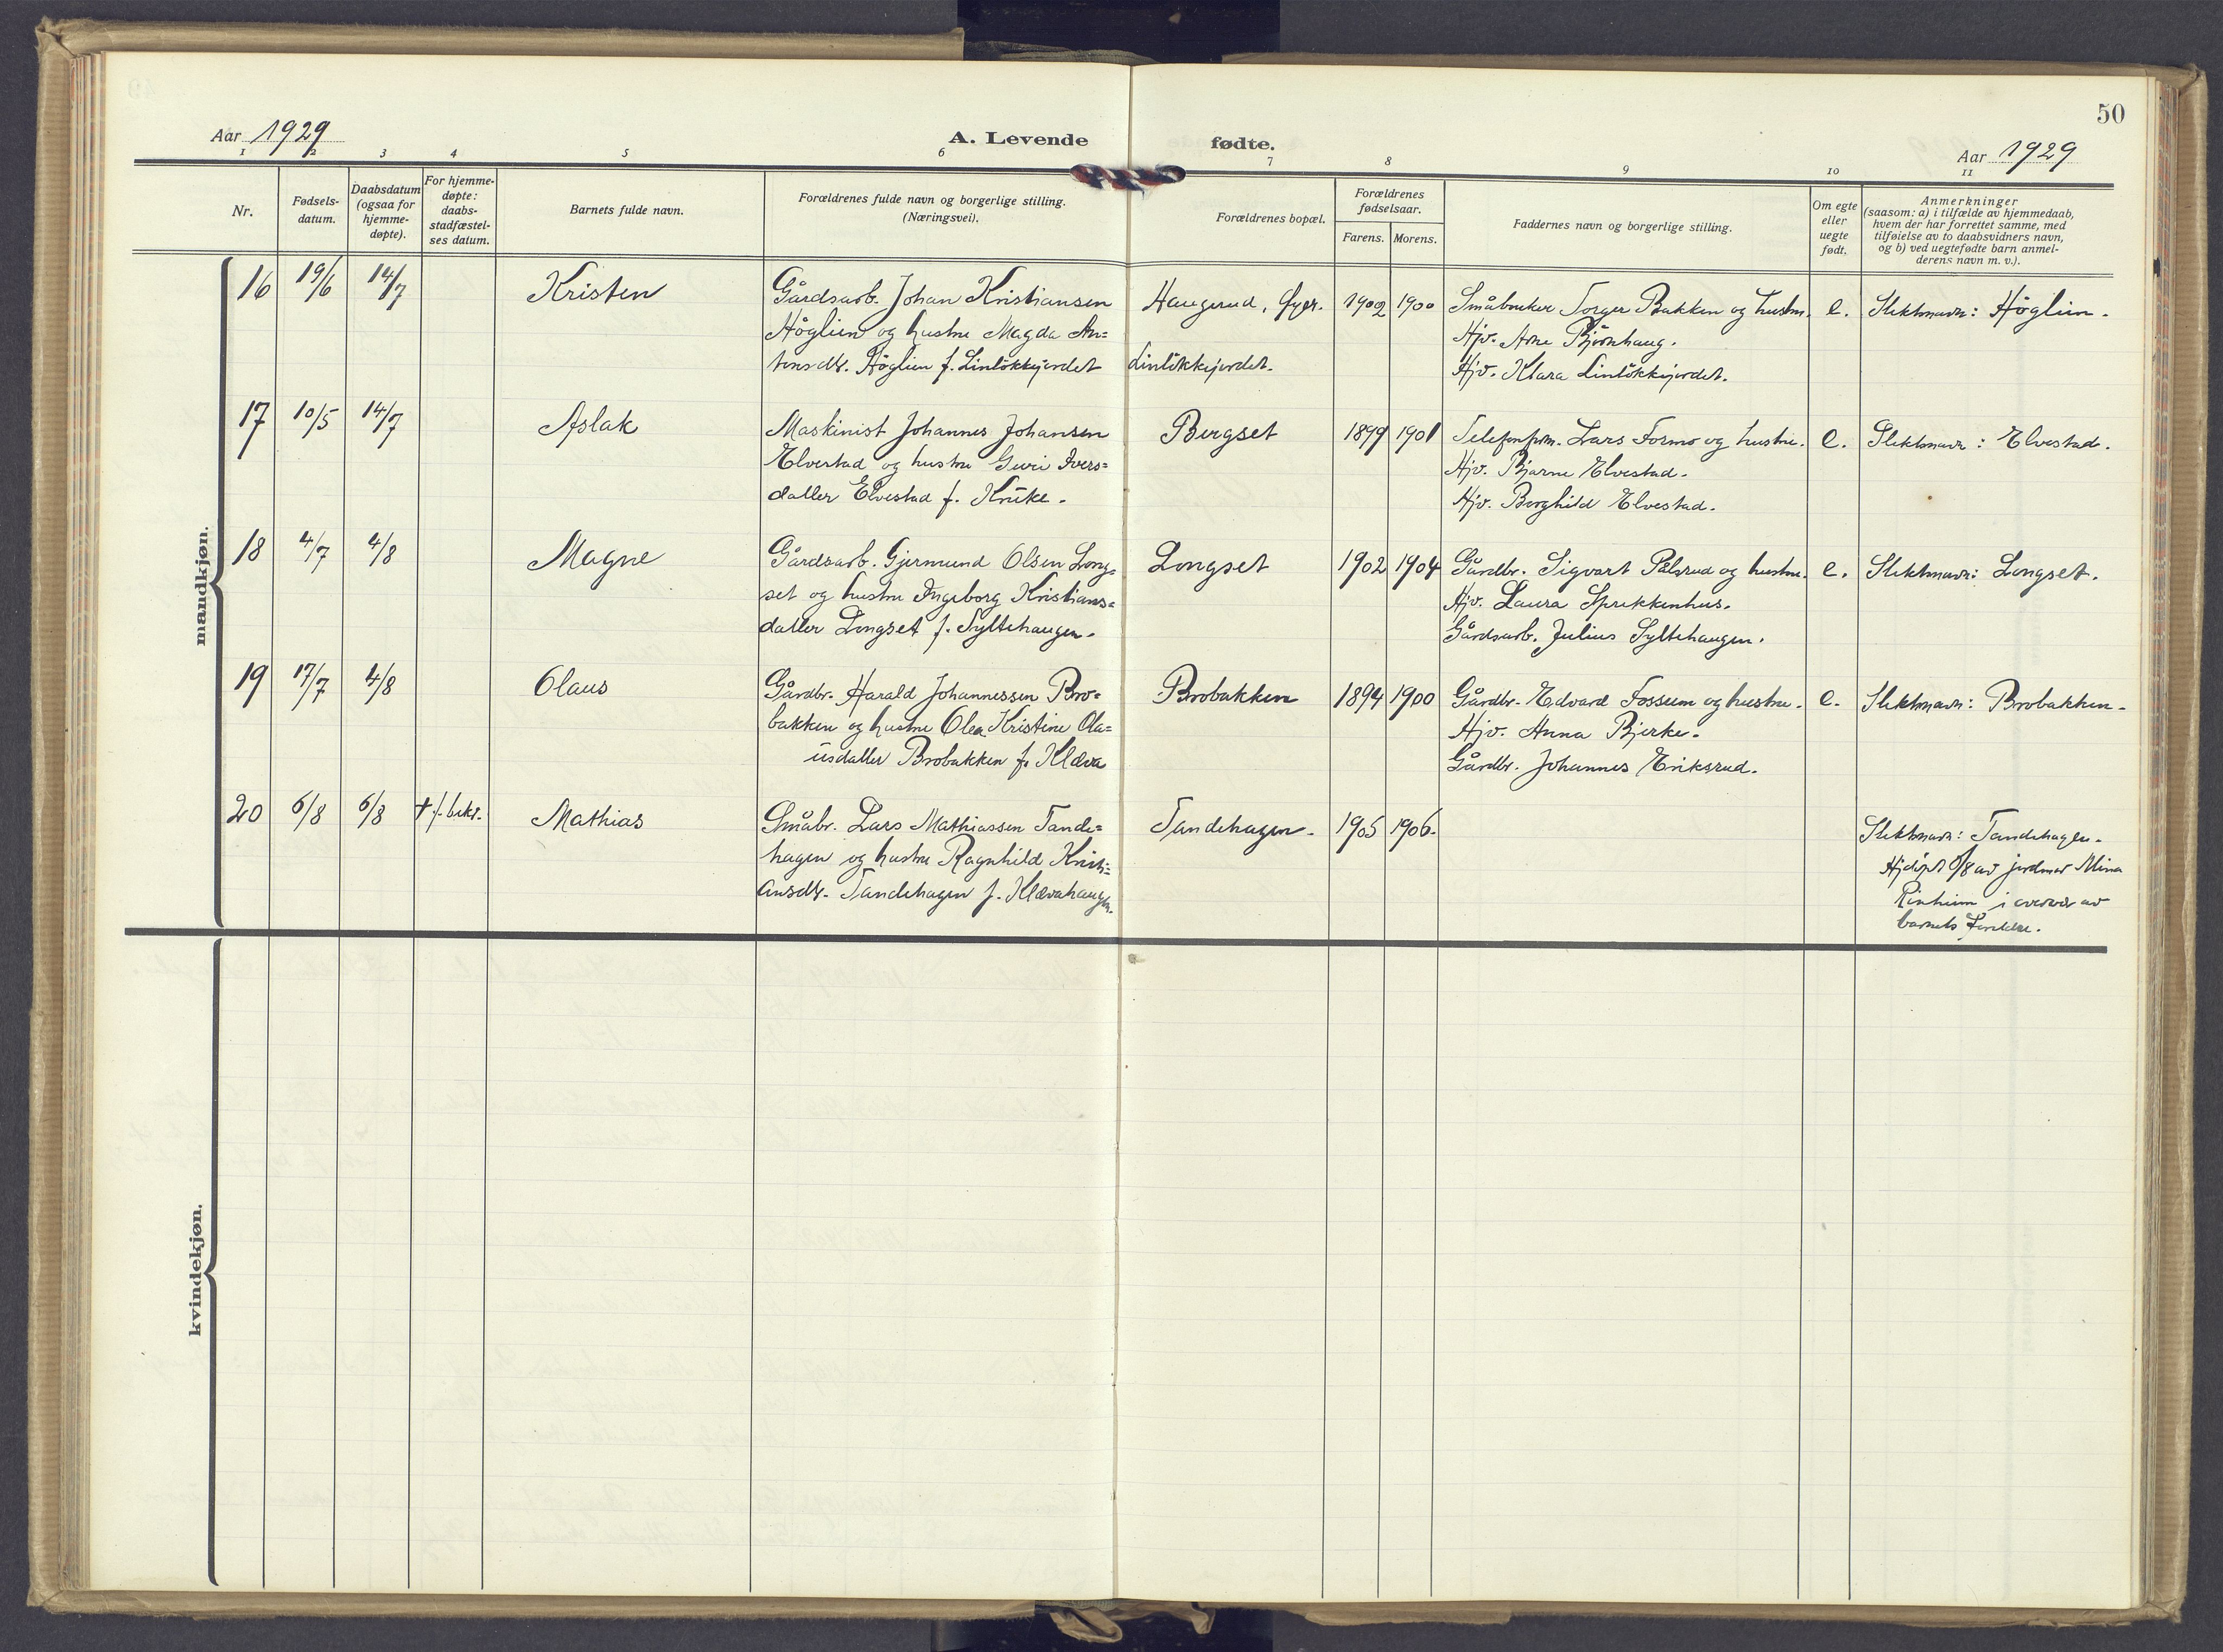 50
Aar 1929
A. Levende
fødte.
Aar 1929
1 2 3 4 5 6 7 8 9 10 11
Nr.
Fødsels-
datum.
Daabsdatum
(ogsaa for
hjemme-
døpte).
For hjemme-
døpte:
daabs-
stadfæstel-
ses datum.
Barnets fulde navn.
Forældrenes fulde navn og borgerlige stilling.
(Næringsvei).
Forældrenes bopæl.
Forældrenes
fødselsaar.
Farens. Morens.
Faddernes navn og borgerlige stilling.
Om egte
eller
uegte
født.
Anmerkninger
(saasom: a) i tilfælde av hjemmedaab,
hvem der har forrettet samme, med
tilføielse av to daabsvidners navn,
og b) ved uegtefødte barn anmel-
derens navn m. v.).
mandkjøn.
16 19/6 14/7 Kristen
Gårdsarb. Johan Kristiansen
Höglien og hustru Magda An=
tonsdtr. Höglien f. Linlökkjordet
Haugerud,
Linlökkjordet.
1902 1900
Småbruker Torger Bakken og hustru.
Hjv. Arne Björnhaug.
Hjv. Klara Linlökkjordet.
e. Slektsnavn: Höglien.
17 10/5 14/7 Aslak
Maskinist Johannes Johansen
Elvestad og hustru Guri Ivers=
datter Elvestad f. Kruke.
Bergset
1899 1901
Telefonform. Lars Formo og hustru.
Hjv. Bjarne Elvestad.
Hjv. Borghild Elvestad.
e. Slektsnavn: Elvestad.
18 4/7 4/8 Magne
Gårdsarb. Gjermund Olsen Long=
set og hustru Ingeborg Kristians=
datter Longset f. Syltehaugen.
Longset
1902 1904
Gårdbr. Sigvart Pålsrud og hustru.
Hjv. Laura Sprikkenhus.
Gårdsarb. Julius Syltehaugen.
e. Slektsnavn: Longset.
19 17/7 4/8 Olaus
Gårdbr. Harald Johannessen Bro=
bakken og hustru Olea Kristine Ola=
usdatter Brobakken f. Kleva
Brobakken
1894 1900
Gårdbr. Edvard Fossum og hustru.
Hjv. Anna Bjerke.
Gårdbr. Johannes Eriksrud.
e. Slektsnavn: Brobakken.
20 6/8 6/8 † f. bekr. Mathias
Småbr. Lars Mathiassen Tande=
hagen og hustru Ragnhild Kristi=
ansdtr. Tandehagen f. Klevahaugen.
Tandehagen.
1905 1906.
Slektsnavn: Tandehagen.
Hjdöpt 6/8 av jordmor Mina
i overvær av
barnets foreldre.
kvindekjøn.